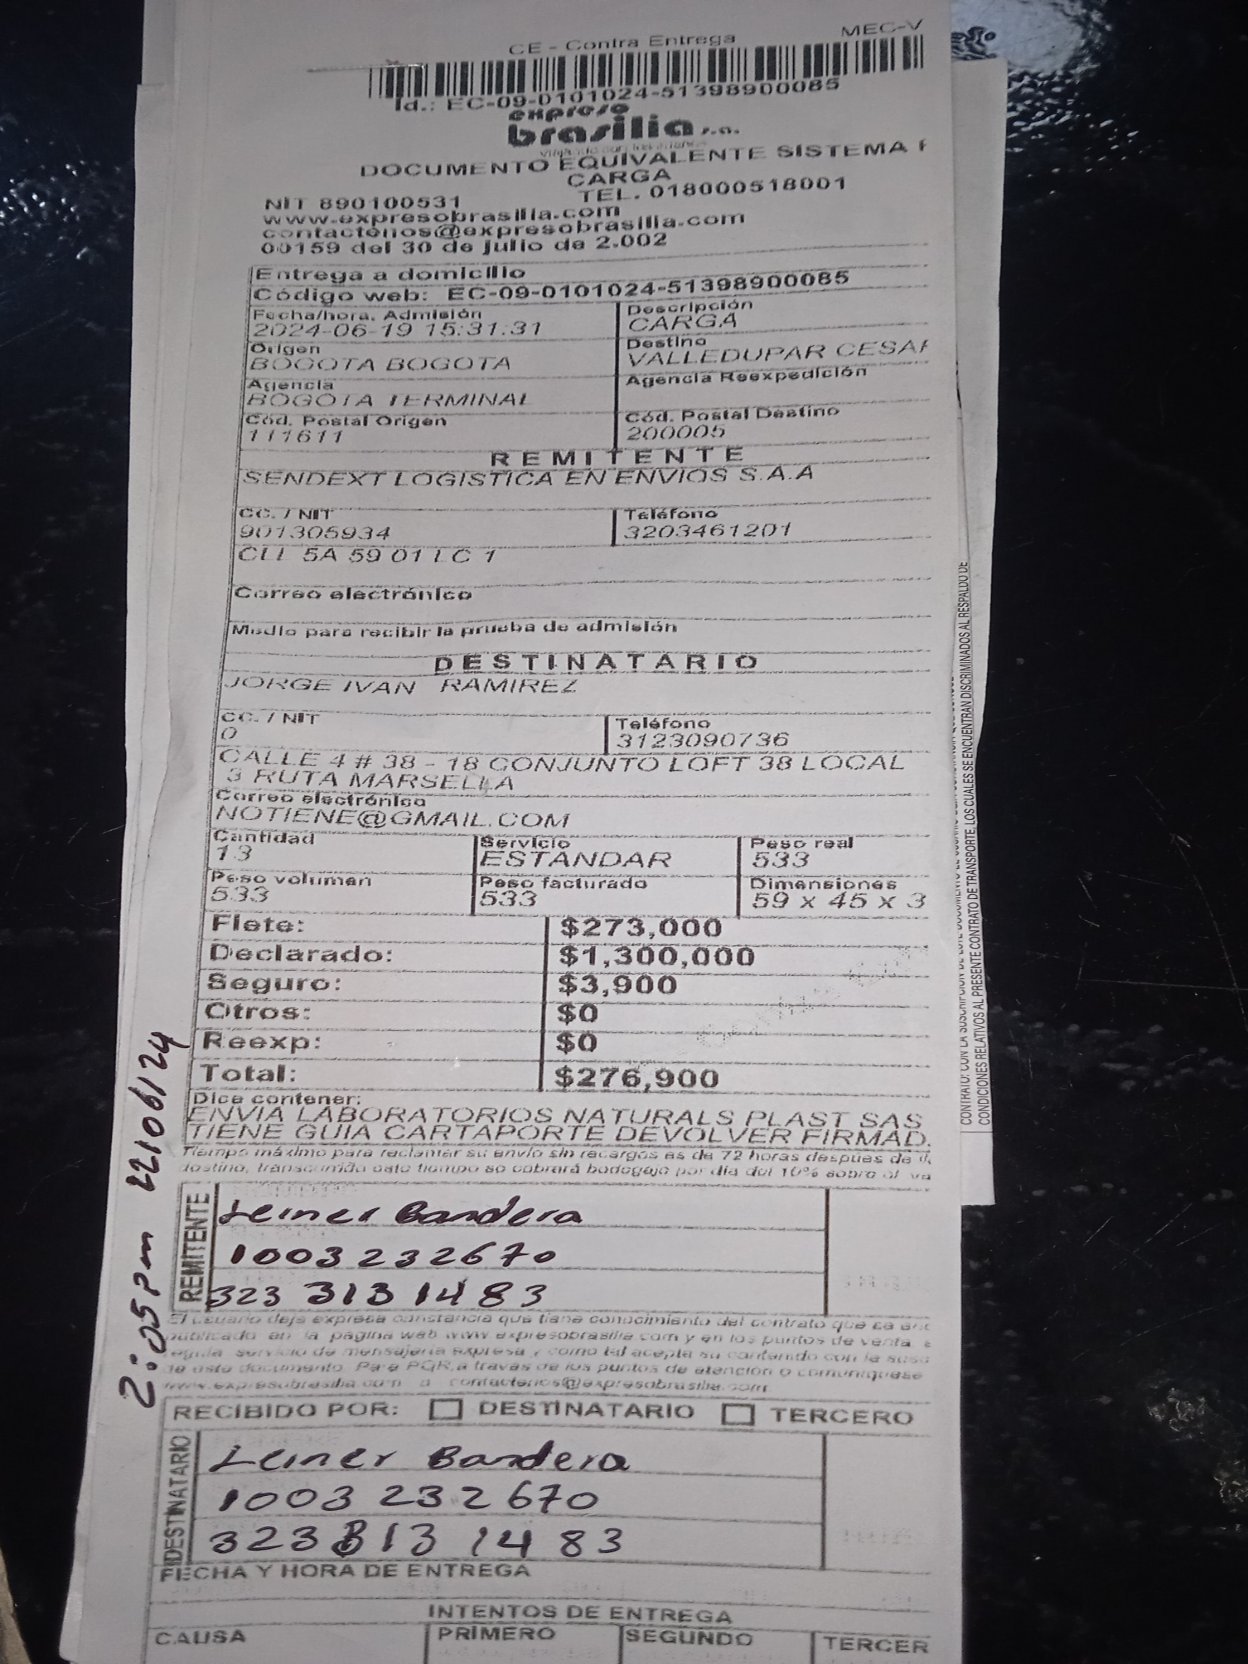 CE - Contra Entrega MEC-V
Id.: EC-09-0101024-51398900085
expreso
brasilia s.a.
DOCUMENTO EQUIVALENTE SISTEMA
CARGA
NIT 890100531 TEL. 018000518001
www.expresobrasilia.com
contactenos@expresobrasilia.com
00159 del 30 de julio de 2.002
Entrega a domicilio
Código web: EC-09-0101024-51398900085
Fecha/hora. Admisión Descripción
2024-06-19 15:31:31 CARGA
Origen Destino
BOGOTA BOGOTA VALLEDUPAR CESAR
Agencia Agencia Reexpedición
BOGOTA TERMINAL
Cód. Postal Origen Cód. Postal Destino
111611 200005
REMITENTE
SENDEXT LOGISTICA EN ENVIOS S.A.A
CC. / NIT Teléfono
901305934 3203461201
CLL 5A 59 01 LC 1
Correo electrónico
Medio para recibir la prueba de admisión
DESTINATARIO
JORGE IVAN RAMIREZ
CC. / NIT Teléfono
0 3123090736
CALLE 4 # 38 - 18 CONJUNTO LOFT 38 LOCAL
3 RUTA MARSELLA
Correo electrónico
NOTIENE@GMAIL.COM
Cantidad Servicio Peso real
13 ESTANDAR 533
Peso volumen Peso facturado Dimensiones
533 533 59 x 45 x 3
Flete: $273,000
Declarado: $1,300,000
Seguro: $3,900
Otros: $0
Reexp: $0
Total: $276,900
Dice contener:
ENVIA LABORATORIOS NATURALS PLAST SAS
TIENE GUIA CARTAPORTE DEVOLVER FIRMAD.
Tiempo máximo para reclamar su envío sin recargos es de 72 horas despues de
destino, transcurrido este tiempo se cobrará bodegaje por día del 10% sobre el va
REMITENTE
Leiner Bandera
1003232670
323 313 1483
El usuario deja expresa constancia que tiene conocimiento del contrato que se enc
publicado en la página web www.expresobrasilia.com y en los puntos de venta,
regula servicio de mensajería expresa y como tal acepta su contenido con la susc
de este documento. Para PQR a través de los puntos de atención o comuníquese
www.expresobrasilia.com o contactenos@expresobrasilia.com
RECIBIDO POR: DESTINATARIO TERCERO
DESTINATARIO
Leiner Bandera
1003 232670
323 313 1483
FECHA Y HORA DE ENTREGA
INTENTOS DE ENTREGA
CAUSA PRIMERO SEGUNDO TERCER
2:05 pm 22/06/24
CONDICIONES RELATIVOS AL PRESENTE CONTRATO DE TRANSPORTE, LOS CUALES SE ENCUENTRAN DISCRIMINADOS AL RESPALDO DE